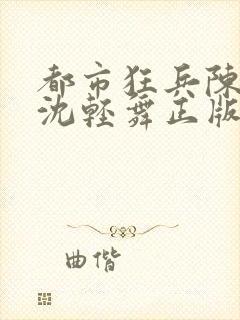 都市狂兵陳
沈輕舞正版
曲偕